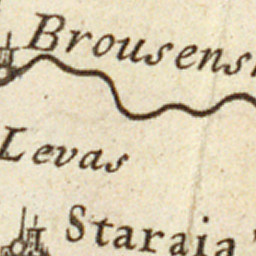 Brousens
Levas
Staraia